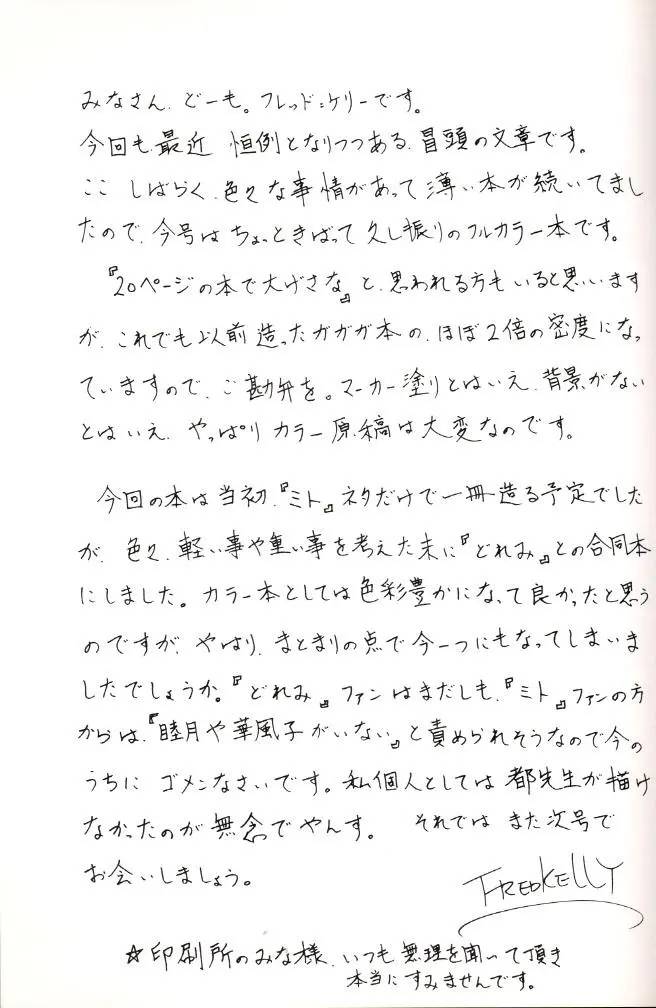 みなさん、どーも。フレッド=ケリーです。
今回も、最近 恒例となりつつある、冒頭の文章です。
ここ しばらく、色々な事情があって 薄い本が続いてまし
たので、今号は ちょっときばって 久し振りのフルカラー本です。
『20ページの本で大げさな』と、思われる方もいると思います
が、これでも以前造ったガガガ本の、ほぼ2倍の密度になっ
ていますので、ご勘弁を。マーカー塗りとはいえ、背景がない
とはいえ、やっぱり カラー原稿は大変なのです。
今回の本は当初、『ミト』ネタだけで一冊造る予定でした
が、色々、軽い事や重い事を考えた末に『どれみ』との合同本
にしました。カラー本としては色彩豊かになって良かったと思う
のですが、やはり、まとまりの点で今一つにもなってしまいま
したでしょうか。『どれみ』ファンはまだしも、『ミト』ファンの方
からは、『睦月や華風子がいない』と責められそうなので今の
うちに ゴメンなさいです。私個人としては都先生が描け
なかったのが無念でやんす。 それでは また次号で
お会いしましょう。
FREDKELLY
☆印刷所のみな様、いつも無理を聞いて頂き
本当にすみませんです。